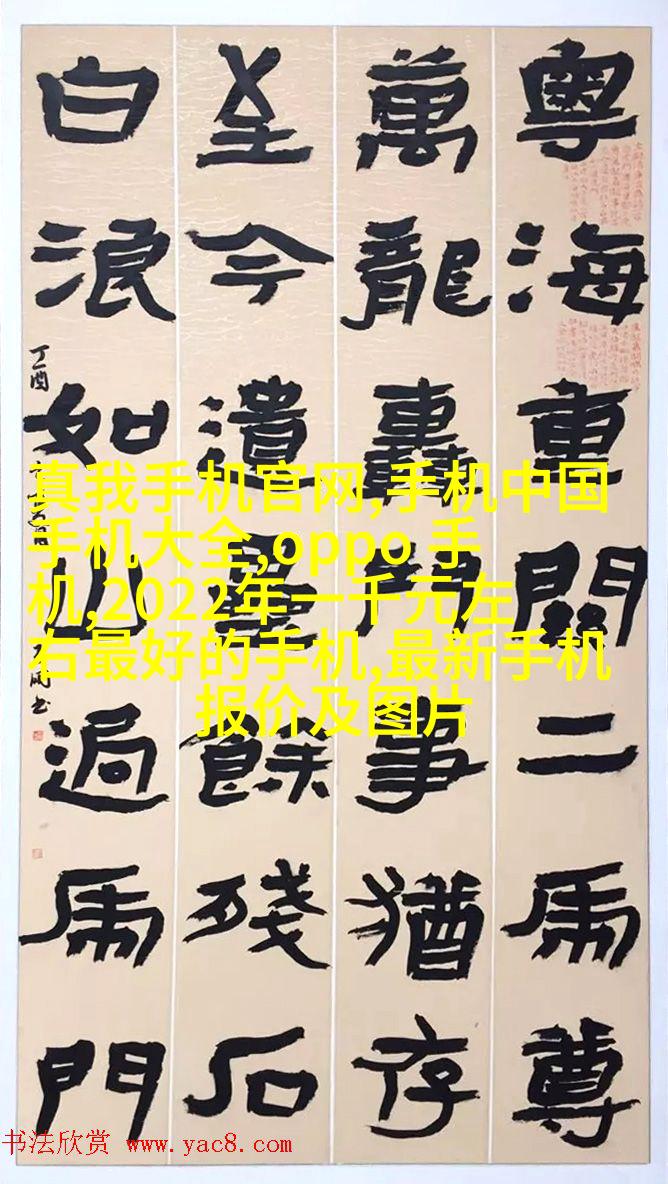 粵海重關二虎尊
萬龍轟鬥事猶存
至今遺壘餘殘石
白浪如山過虎門
丁酉
真我手机官网,手机中国
手机大全,oppo 手
机,2022年一千元左
右最好的手机,最新手机
报价及图片
书法欣赏 www.yac8.com